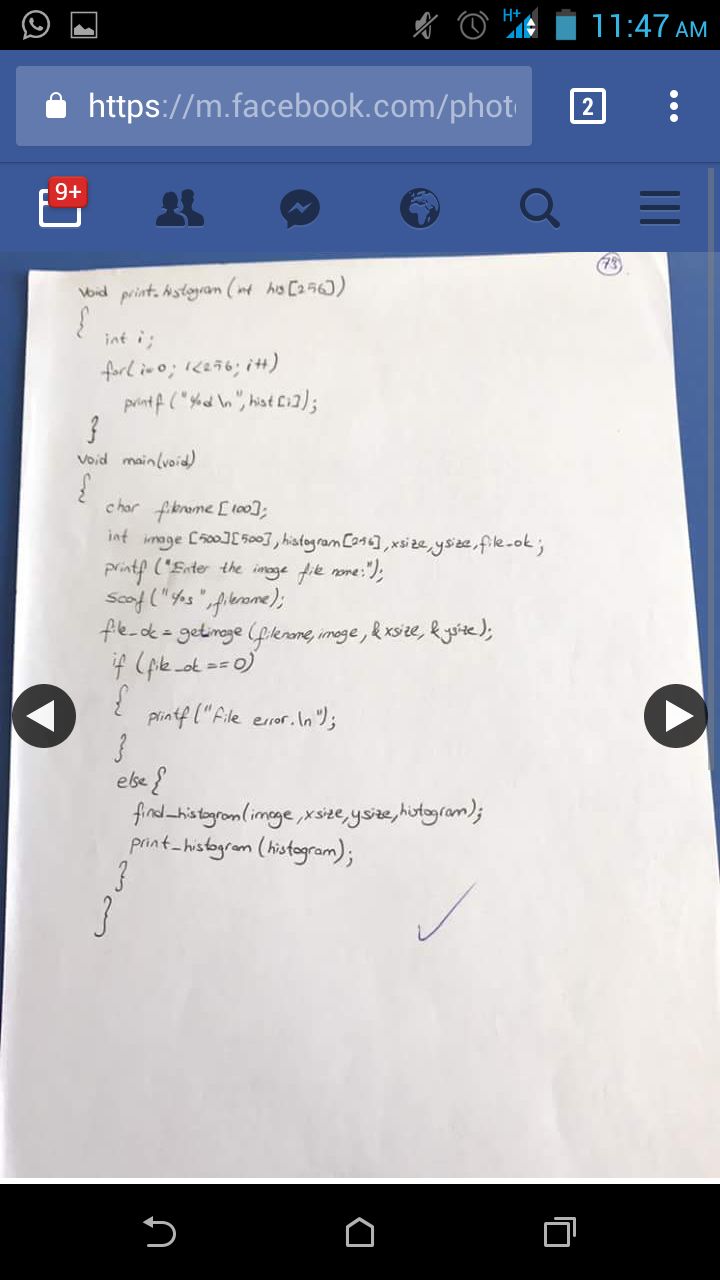 H+ 11:47 AM
https://m.facebook.com/phot
2
9+
73
void print_histogram (int his[256])
{
int i;
for(i=0; i<256; i++)
printf ("%d\n", hist[i]);
}
void main(void)
{
char filename [100];
int image [500][500], histogram[256], xsize, ysize, file_ok;
printf ("Enter the image file name:");
scanf ("%s", filename);
file_ok = getimage (filename, image, &xsize, &ysize);
if (file_ok == 0)
{
printf ("File error.\n");
}
else {
find_histogram(image, xsize, ysize, histogram);
print_histogram (histogram);
}
}